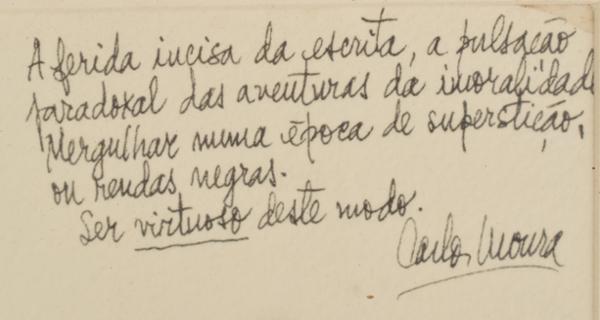 A ferida incisa da escrita, a pulsação
paradoxal das aventuras da imoralidade
Mergulhar numa época de superstição,
ou rendas negras.
Ser virtuoso deste modo.
Carlos Moura